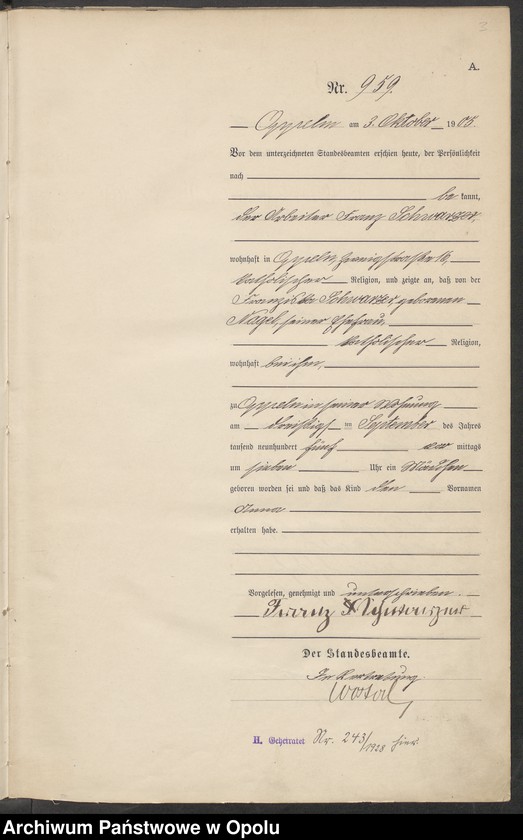 3
A.
Nr. 959.
Oppeln am 3. Oktober 1905.
Vor dem unterzeichneten Standesbeamten erschien heute, der Persönlichkeit
nach
be kannt,
der Arbeiter Franz Schwarzer,
wohnhaft in Oppeln, 16,
katholischer Religion, und zeigte an, daß von der
Franziska Schwarzer, geborenen
Nagel, seiner Ehefrau,
katholischer Religion,
wohnhaft bei ihm,
zu Oppeln in seiner Wohnung
am dreißigsten September des Jahres
tausend neunhundert fünf vor mittags
um sieben Uhr ein Mädchen
geboren worden sei und daß das Kind den Vornamen
Anna
erhalten habe.
Vorgelesen, genehmigt und unterschrieben.
Franz
Der Standesbeamte.
In Vertretung
H. Geheiratet Nr. 243/1928 hier
Archiwum Państwowe w Opolu